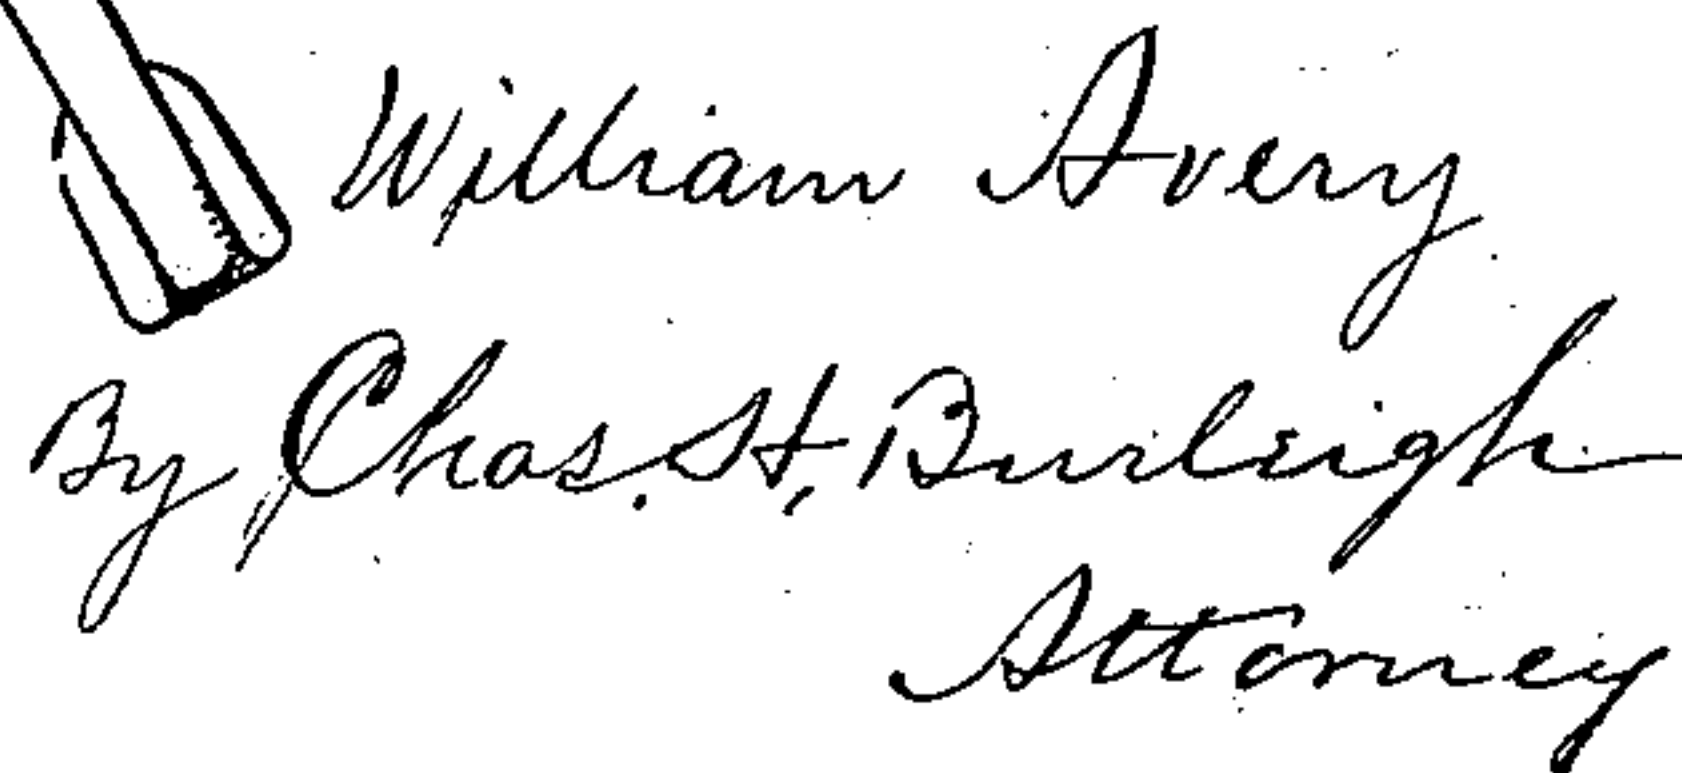 William Avery
By Chas. H. Burleigh
Attorney